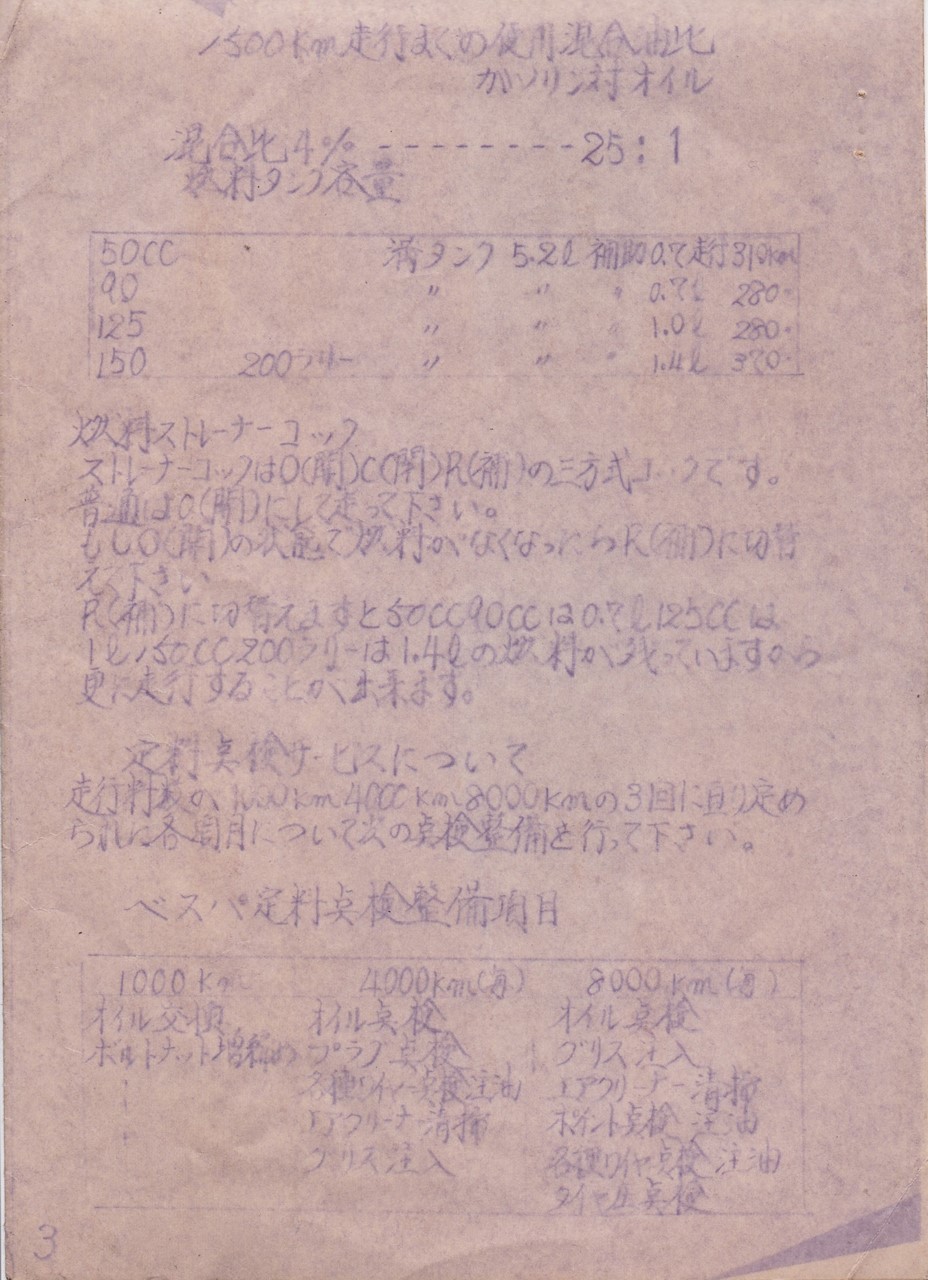 1500Km走行までの使用混合油比
ガソリン対オイル
混合比4% --------- 25:1
燃料タンク容量
50CC 満タンク 5.2ℓ 補助0.7走行310km
90 〃 〃 〃 0.7ℓ 280〃
125 〃 〃 〃 1.0ℓ 280〃
150 200ラリー 〃 〃 〃 1.4ℓ 370〃
燃料ストレーナーコック
ストレーナーコックはO(開)C(閉)R(補)の三方式コックです。
普通はO(開)にして走って下さい。
もしO(開)の状態で燃料がなくなったらR(補)に切替
えて下さい
R(補)に切替えますと50CC90CCは0.7ℓ125CCは
1ℓ150CC200ラリーは1.4ℓの燃料が残っていますから
更に走行することが出来ます。
定料点検サービスについて
走行料数が1000km4000km8000kmの3回に亘り定め
られた各箇月について次の点検整備を行って下さい。
ベスパ定料点検整備項目
1000Km 4000km(毎) 8000km(毎)
オイル交換 オイル点検 オイル点検
ボルトナット増締め プラグ点検 グリス注入
各種ワイヤー点検注油 エアクリーナー清掃
エアクリーナ清掃 ポイント点検 注油
グリス注入 各種ワイヤ点検 注油
タイヤ圧点検
3